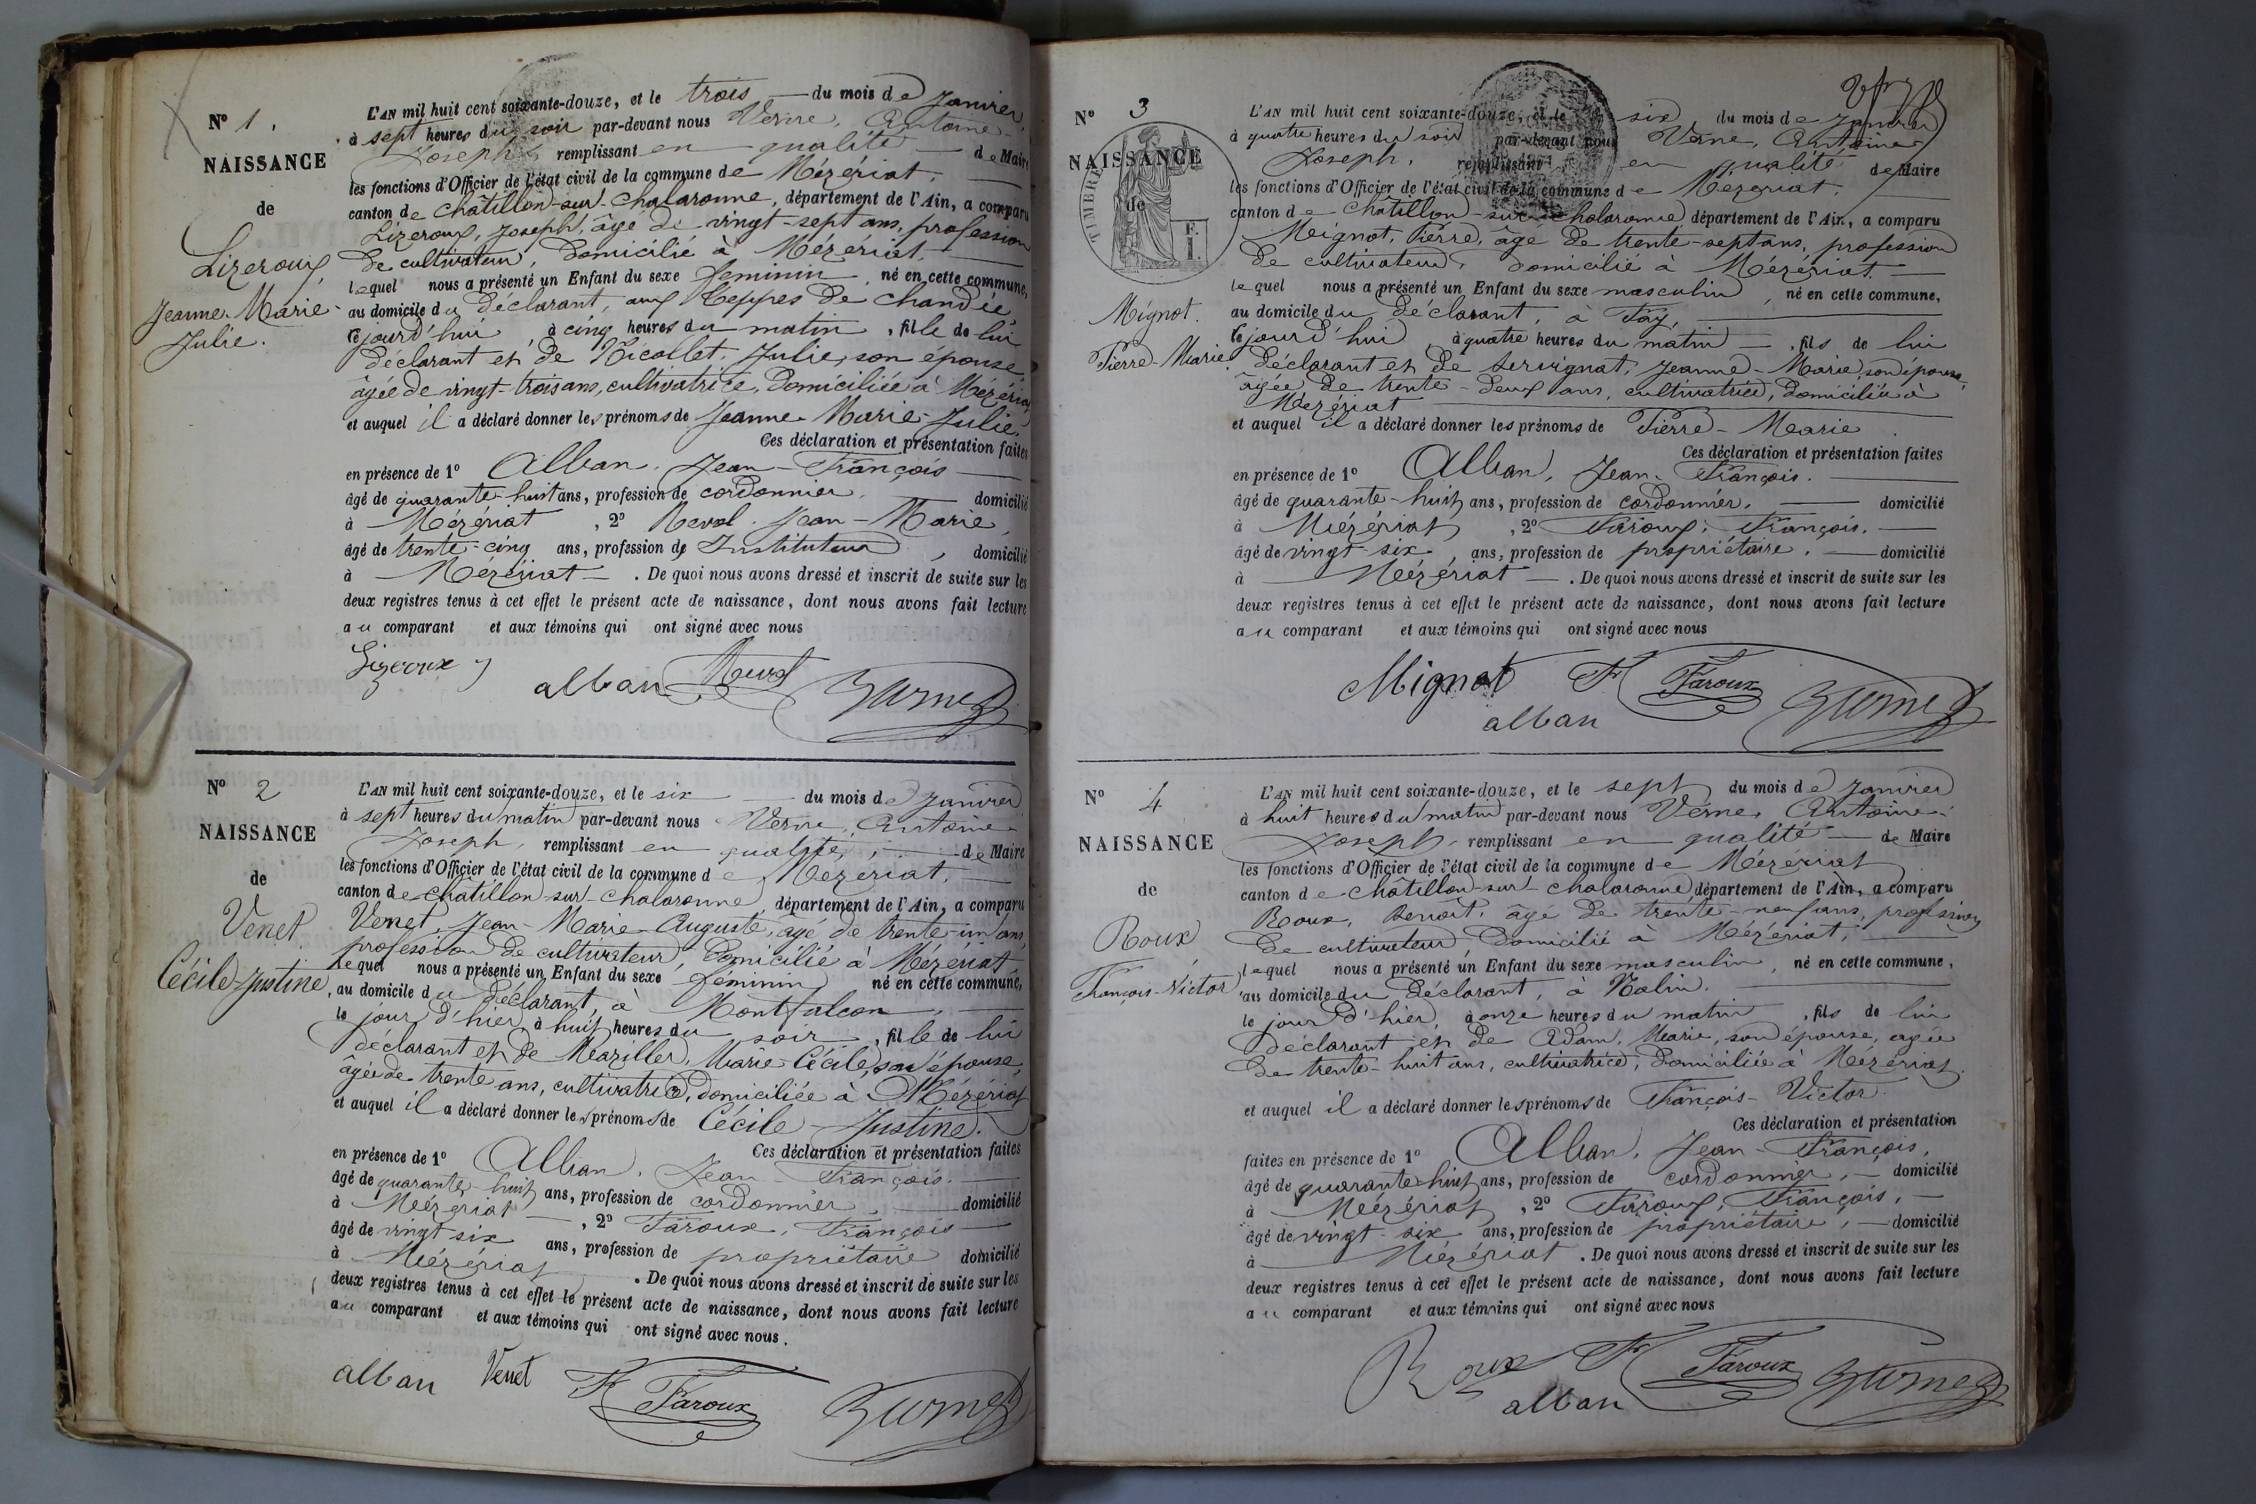 N° 1.
NAISSANCE
de
Lizeroux
Jeanne-Marie-
Julie.
L'AN mil huit cent soixante-douze, et le trois du mois de Janvier,
à sept heures du soir par-devant nous Verne, Antoine-
Joseph, remplissant en qualité de Maire
les fonctions d'Officier de l'état civil de la commune de Mézériat,
canton de Châtillon-sur-Chalaronne, département de l'Ain, a comparu
Lizeroux, Joseph, âgé de vingt-sept ans, profession
de cultivateur, domicilié à Mézériat,
lequel nous a présenté un Enfant du sexe féminin, né en cette commune,
au domicile du déclarant, aux Teppes de Chandée,
ce jourd'hui à cinq heures du matin, fille de lui
déclarant et de Nicollet, Julie, son épouse,
âgée de vingt-trois ans, cultivatrice, domiciliée à Mézériat
et auquel il a déclaré donner les prénoms de Jeanne-Marie-Julie.
Ces déclaration et présentation faites
en présence de 1° Alban, Jean-François
âgé de quarante-huit ans, profession de cordonnier, domicilié
à Mézériat, 2° Reval, Jean-Marie,
âgé de trente-cinq ans, profession de Instituteur, domicilié
à Mézériat. De quoi nous avons dressé et inscrit de suite sur les
deux registres tenus à cet effet le présent acte de naissance, dont nous avons fait lecture
au comparant et aux témoins qui ont signé avec nous
Lizeroux J alban Reval Verne
N° 2
NAISSANCE
de
Venet
Cécile-Justine
L'AN mil huit cent soixante-douze, et le six du mois de Janvier
à sept heures du matin par-devant nous Verne, Antoine-
Joseph, remplissant en qualité, de Maire
les fonctions d'Officier de l'état civil de la commune de Mézériat,
canton de Châtillon-sur-Chalaronne, département de l'Ain, a comparu
Venet, Jean-Marie-Auguste, âgé de trente-un ans,
profession de cultivateur, domicilié à Mézériat
lequel nous a présenté un Enfant du sexe féminin né en cette commune,
au domicile du déclarant, à Montfalcon,
le jour d'hier, à huit heures du soir, fille de lui
déclarant et de Maziller, Marie-Cécile, son épouse,
âgée de trente ans, cultivatrice, domiciliée à Mézériat
et auquel il a déclaré donner les prénoms de Cécile-Justine.
Ces déclaration et présentation faites
en présence de 1° Alban, Jean-François.
âgé de quarante-huit ans, profession de cordonnier, domicilié
à Mézériat, 2° Faroux, François
âgé de vingt six ans, profession de propriétaire domicilié
à Mézériat. De quoi nous avons dressé et inscrit de suite sur les
deux registres tenus à cet effet le présent acte de naissance, dont nous avons fait lecture
au comparant et aux témoins qui ont signé avec nous.
alban Venet F Faroux Verne
N° 3
NAISSANCE
de
TIMBRE
F.
1.
Mignot.
Pierre-Marie
L'AN mil huit cent soixante-douze, et le six du mois de Janvier
à quatre heures du soir par-devant nous Verne, Antoine
Joseph, remplissant en qualité de Maire
les fonctions d'Officier de l'état civil de la commune de Mézériat,
canton de Châtillon-sur-Chalaronne département de l'Ain, a comparu
Mignot, Pierre, âgé de trente-sept ans, profession
de cultivateur, domicilié à Mézériat.
lequel nous a présenté un Enfant du sexe masculin, né en cette commune,
au domicile du déclarant, à Fay,
ce jourd'hui à quatre heures du matin, fils de lui
déclarant et de Servignat, Jeanne-Marie, son épouse,
âgée de trente-deux ans, cultivatrice, domiciliée à
Mézériat
et auquel il a déclaré donner les prénoms de Pierre-Marie
Ces déclaration et présentation faites
en présence de 1° Alban, Jean-François.
âgé de quarante-huit ans, profession de cordonnier, domicilié
à Mézériat, 2° Faroux, François,
âgé de vingt-six, ans, profession de propriétaire, domicilié
à Mézériat. De quoi nous avons dressé et inscrit de suite sur les
deux registres tenus à cet effet le présent acte de naissance, dont nous avons fait lecture
au comparant et aux témoins qui ont signé avec nous
Mignot F Faroux Verne
alban
N° 4
NAISSANCE
de
Roux
François-Victor
L'AN mil huit cent soixante-douze, et le sept du mois de Janvier
à huit heures du matin par-devant nous Verne, Antoine-
Joseph, remplissant en qualité de Maire
les fonctions d'Officier de l'état civil de la commune de Mézériat
canton de Châtillon-sur-Chalaronne département de l'Ain, a comparu
Roux, Benoît, âgé de trente-neuf ans, profession
de cultivateur, domicilié à Mézériat,
lequel nous a présenté un Enfant du sexe masculin, né en cette commune,
au domicile du déclarant, à Nalin.
le jour d'hier, à onze heures du matin, fils de lui
déclarant et de Adam, Marie, son épouse, agée
de trente-huit ans, cultivatrice, domiciliée à Mézériat.
et auquel il a déclaré donner les prénoms de François-Victor.
Ces déclaration et présentation
faites en présence de 1° Alban, Jean-François,
âgé de quarante huit ans, profession de cordonnier, domicilié
à Mézériat, 2° Faroux, François,
âgé de vingt-six ans, profession de propriétaire, domicilié
à Mézériat. De quoi nous avons dressé et inscrit de suite sur les
deux registres tenus à cet effet le présent acte de naissance, dont nous avons fait lecture
au comparant et aux témoins qui ont signé avec nous
Roux F Faroux Verne
alban